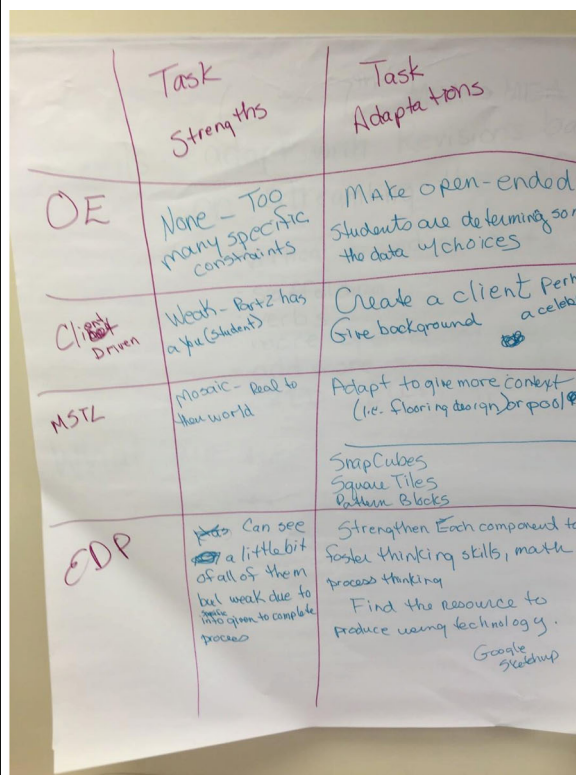 Task
Strengths
Task
Adaptations
OE
None - Too
many specific
constraints
Make open-ended
Students are determing so
the data w/choices
Client
Driven
Weak - Part 2 has
a you (student)
Create a client Perh
Give background a celeb
MSTL
Mosaic - Real to
their world
Adapt to give more context
(i.e. flooring design) or pool
SnapCubes
Square Tiles
Pattern Blocks
EDP
Can see
a little bit
of all of them
but weak due to
info given to complete
process
Strengthen Each component to
foster thinking skills, math
process thinking
Find the resource to
produce using technology.
Google
Sketchup